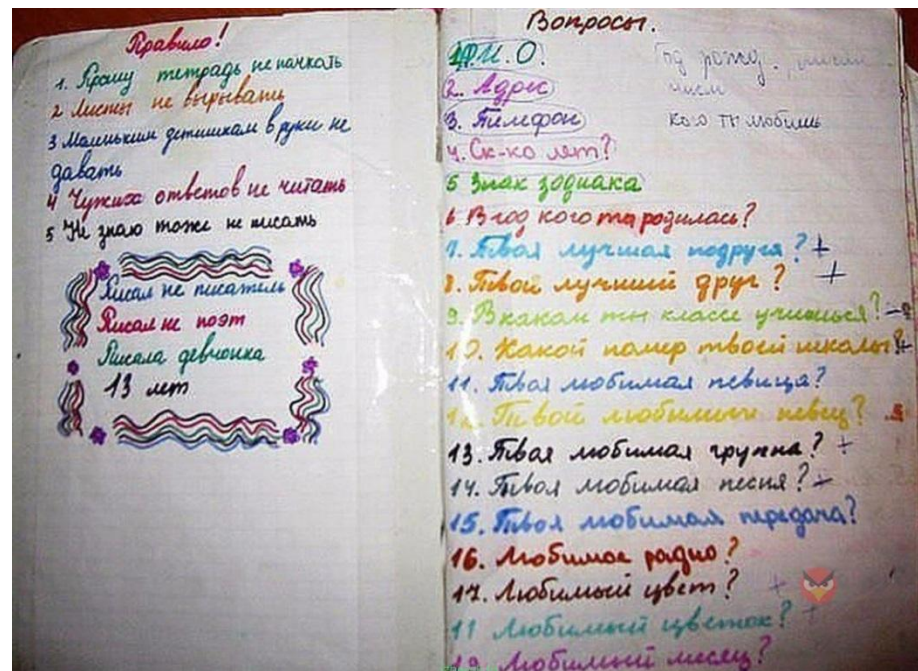 Правило!
1. Прошу тетрадь не пачкать
2 Листы не вырывать
3 Маленьким детишкам в руки не
давать
4 Чужих ответов не читать
5 Не знаю тоже не писать
Писал не писатель
Писал не поэт
Писала девчонка
13 лет
Вопросы.
1. Ф.И.О.
Год рожд.
2. Адрес
числ
3. Тилефон
кого ты любишь
4. Ск-ко лет?
5 Знак зодиака
6. В год кого ты родилась?
7. Твоя лучшая подруга? +
8. Твой лучший друг? +
9. В каком ты классе учишься?
10. Какой номер твоей школы?
11. Твоя любимая певица?
12. Твой любимый певец?
13. Твоя любимая группа? +
14. Твоя любимая песня?
15. Твоя любимая передача?
16. Любимое радио?
17. Любимый цвет? +
11 Любимый цветок? +
19. Любимый месяц?